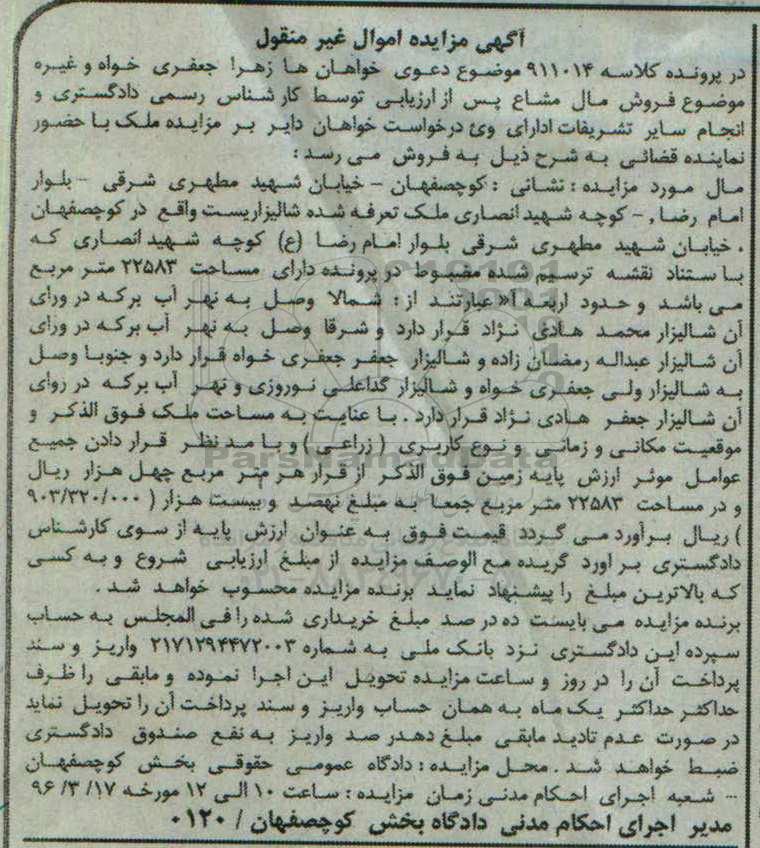 آگهی مزایده اموال غیر منقول
در پرونده کلاسه ۹۱۱۰۱۴ موضوع دعوی خواهان ها زهرا جعفری خواه و غیره
موضوع فروش مال مشاع پس از ارزیابی توسط کارشناس رسمی دادگستری و
انجام سایر تشریفات ادارای وئ درخواست خواهان دایر بر مزایده ملک با حضور
نماینده قضائی به شرح ذیل به فروش می رسد :
مال مورد مزایده : نشانی : کوچصفهان - خیابان شهید مطهری شرقی - بلوار
امام رضا , - کوچه شهید انصاری ملک تعرفه شده شالیزاریست واقع در کوچصفهان
، خیابان شهید مطهری شرقی بلوار امام رضا (ع) کوچه شهید انصاری که
با ستناد نقشه ترسیم شده مضبوط در پرونده دارای مساحت ۲۲۵۸۳ متر مربع
می باشد و حدود اربعه آ« عبارتند از : شمالا وصل به نهر آب برکه در ورای
آن شالیزار محمد هادی نژاد قرار دارد و شرقا وصل به نهر آب برکه در ورای
آن شالیزار عبداله رمضان زاده و شالیزار جعفر جعفری خواه قرار دارد و جنوبا وصل
به شالیزار ولی جعفری خواه و شالیزار گداعلی نوروزی و نهر آب برکه در روای
آن شالیزار جعفر هادی نژاد قرار دارد . با عنایت به مساحت ملک فوق الذکر و
موقعیت مکانی و زمانی و نوع کاربری ( زراعی ) و با مد نظر قرار دادن جمیع
عوامل موثر ارزش پایه زمین فوق الذکر از قرار هر متر مربع چهل هزار ریال
و در مساحت ۲۲۵۸۳ متر مربع جمعا به مبلغ نهصد و بیست هزار ( ۹۰۳/۳۲۰/۰۰۰
) ریال برآورد می گردد قیمت فوق به عنوان ارزش پایه از سوی کارشناس
دادگستری بر اورد گریده مع الوصف مزایده از مبلغ ارزیابی شروع و به کسی
که بالاترین مبلغ را پیشنهاد نماید برنده مزایده محسوب خواهد شد .
برنده مزایده می بایست ده در صد مبلغ خریداری شده را فی المجلس به حساب
سپرده این دادگستری نزد بانک ملی به شماره ۲۱۷۱۲۹۴۴۷۲۰۰۳ واریز و سند
پرداخت آن را در روز و ساعت مزایده تحویل این اجرا نموده و مابقی را ظرف
حداکثر حداکثر یک ماه به همان حساب واریز و سند پرداخت آن را تحویل نماید
در صورت عدم تادید مابقی مبلغ دهدر صد واریز به نفع صندوق دادگستری
ضبط خواهد شد . محل مزایده : دادگاه عمومی حقوقی بخش کوچصفهان
... شعبه اجرای احکام مدنی زمان مزایده : ساعت ۱۰ الی ۱۲ مورخه ۱۷/ ۳/ ۹۶
مدیر اجرای احکام مدنی دادگاه بخش کوچصفهان / ۰۱۲۰